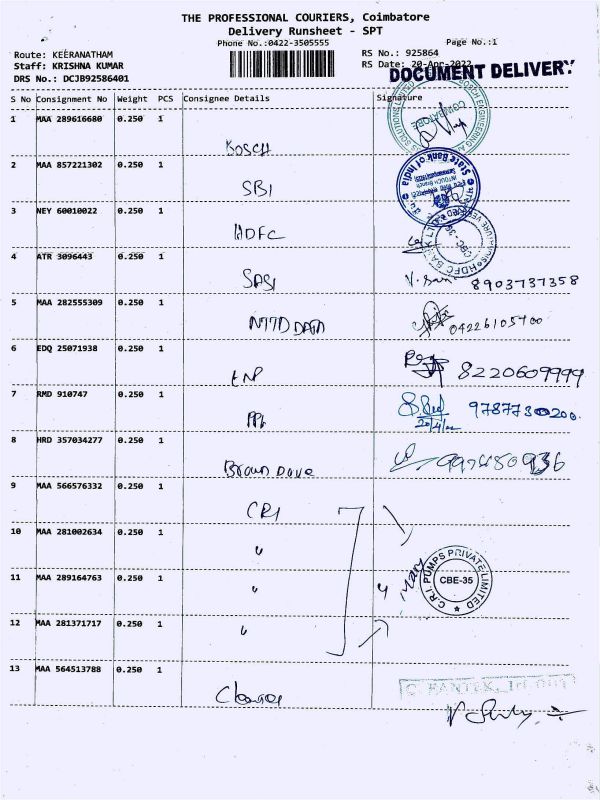 THE PROFESSIONAL COURIERS, Coimbatore
Delivery Runsheet - SPT
Phone No.:0422-3505555
Page No.:1
Route: KEERANATHAM
RS No.: 925864
Staff: KRISHNA KUMAR
RS Date: 20-Apr-2022
DRS No.: DCJB92586401
DOCUMENT DELIVERY
S No Consignment No Weight PCS Consignee Details Signature
1 MAA 289616680 0.250 1
BOSCH
COIMBATORE
2 MAA 857221302 0.250 1
SBI
State Bank of India
3 NEY 60010022 0.250 1
HDFC
HDFC BANK
CBE
4 ATR 3096443 0.250 1
SASI
8903737358
5 MAA 282555309 0.250 1
NTTD DATA
04226105400
6 EDQ 25071938 0.250 1
8220609999
7 RMD 910747 0.250 1
PPL
20/4/22
8 HRD 357034277 0.250 1
Brown Dove
9 MAA 566576332 0.250 1
CRI
10 MAA 281002634 0.250 1
"
11 MAA 289164763 0.250 1
"
4
Mary
C.R.I. PUMPS PRIVATE LIMITED
CBE-35
12 MAA 281371717 0.250 1
"
13 MAA 564513788 0.250 1